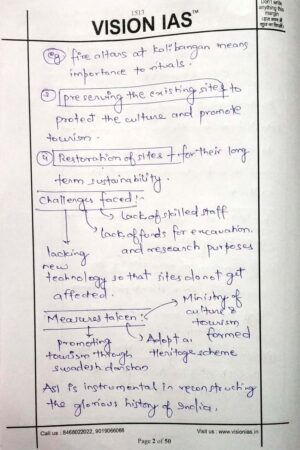 1513
VISION IAS™
Don't write
anything this
margin
eg fire altars at kalibangan means
importance to rituals.
3 preserving the existing sites to
protect the culture and promote
tourism.
4 Restoration of sites - for their long
term sustainability.
Challenges faced :-
Lack of skilled staff
Lack of funds for excavation.
and research purposes
lacking
new
technology so that sites do not get
affected.
Ministry of
culture & tourism
formed
Measures taken :-
promoting
tourism through
swadesh darshan
Adopt a
Heritage scheme
ASI is instrumental in reconstructing
the glorious history of India.
Call us : 8468022022, 9019066066
Visit us : www.visionias.in
Page 2 of 50